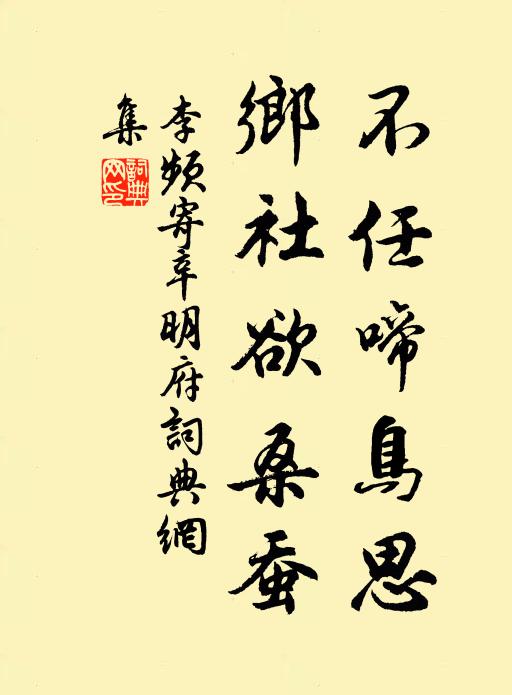 不任啼鳥思
鄉社欲桑蚕
李频寄辛明府詞典網
集
詞典
网印